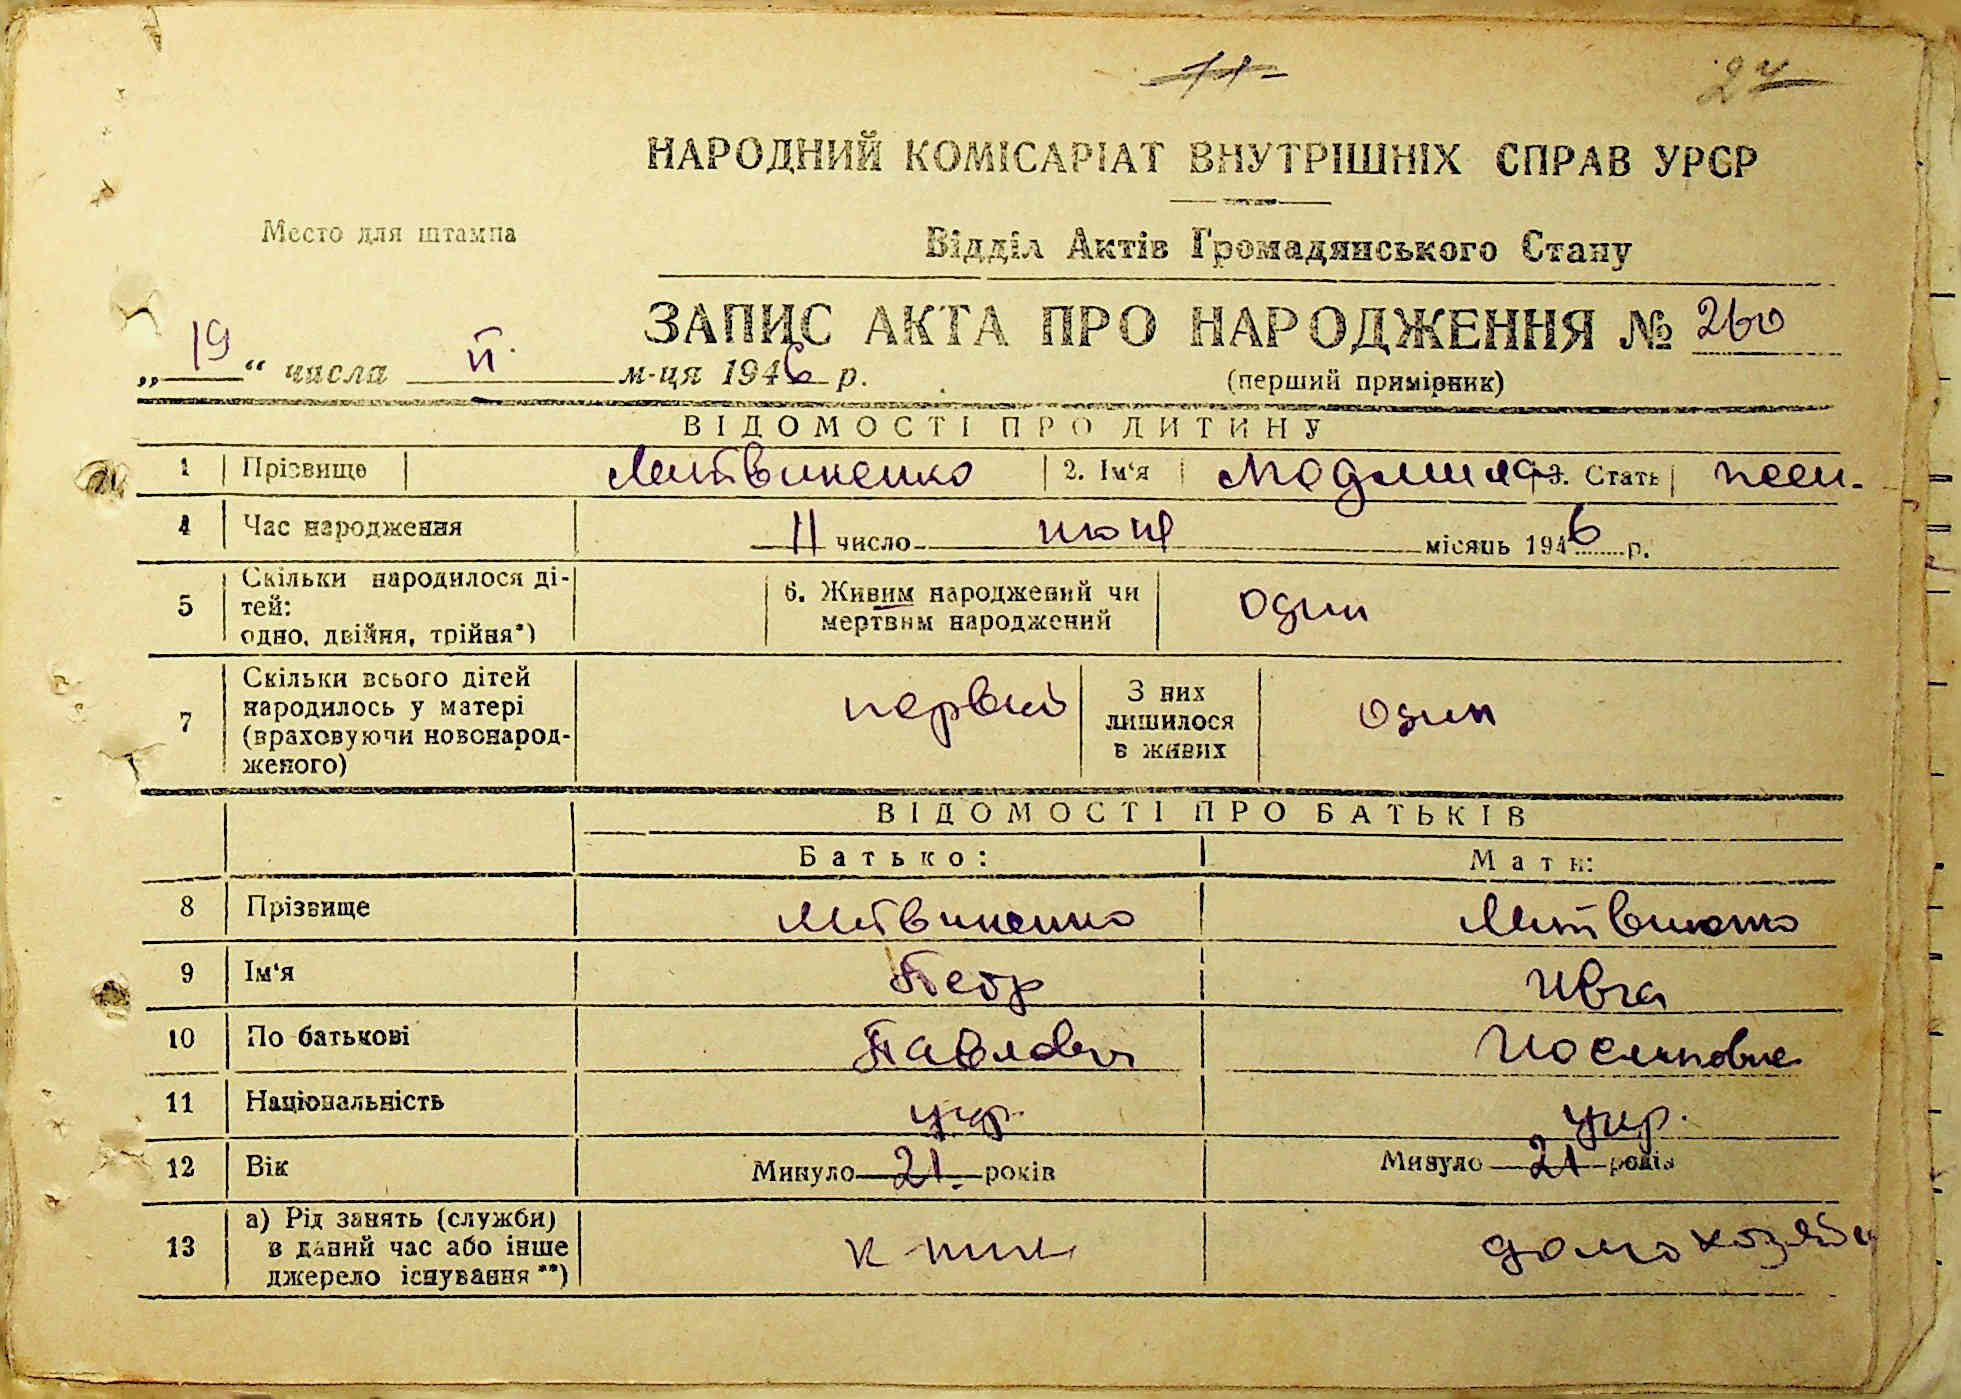 11
24
НАРОДНИЙ КОМІСАРІАТ ВНУТРІШНІХ СПРАВ УРСР
Место для штампа
Відділ Актів Громадянського Стану
ЗАПИС АКТА ПРО НАРОДЖЕННЯ № 260
„19“ числа м-ця 1946 р.
(перший примірник)
ВІДОМОСТІ ПРО ДИТИНУ
1 Прізвище Литвиненко 2. Ім'я Людмила 3. Стать жен.
4 Час народження 11 число місяць 1946 р.
5 Скільки народилося ді-
тей:
одно, двійня, трійня*)
6. Живим народжений чи
мертвим народжений
один
7 Скільки всього дітей
народилось у матері
(враховуючи новонарод-
женого)
первый
З них
лишилося
в живих
один
ВІДОМОСТІ ПРО БАТЬКІВ
Батько: Мати:
8 Прізвище Литвиненко Литвиненко
9 Ім'я Петр Ивга
10 По батькові Павлович
11 Національність укр. укр.
12 Вік Минуло 21 років Минуло 21 років
13 а) Рід занять (служби)
в даний час або інше
джерело існування**)